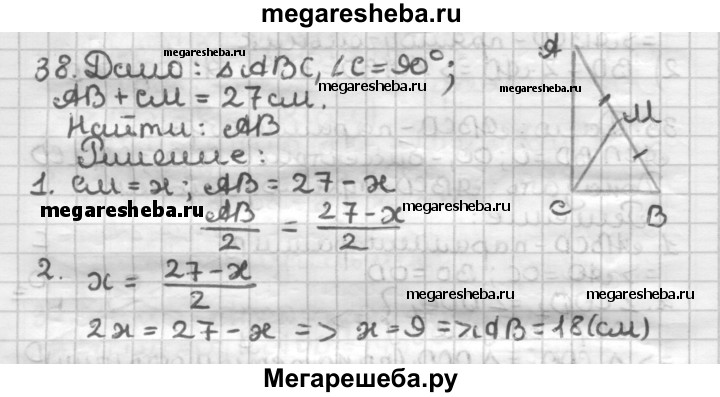 megaresheba.ru
38. Дано: △ABC, ∠C=90°;
AB + CM = 27 см.
Найти: AB
Решение:
1. CM = x; AB = 27 - x
AB/2 = (27 - x)/2
2. x = (27 - x)/2
2x = 27 - x => x = 9 => AB = 18 (см)
A
M
C
B
megaresheba.ru
megaresheba.ru
megaresheba.ru
megaresheba.ru
megaresheba.ru
megaresheba.ru
megaresheba.ru
Мегарешеба.ру